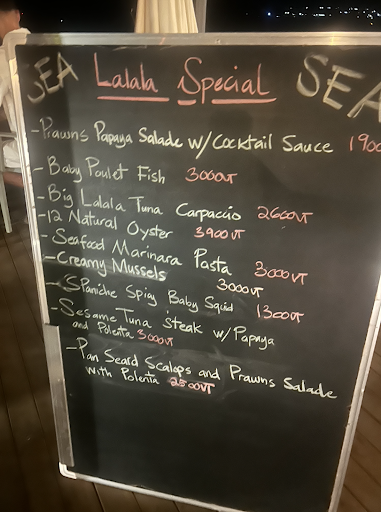 SEA Lalala Special SEA
-Prawns Papaya Salade w/Cocktail Sauce 1900
-Baby Poulet Fish 3000VT
-Big Lalala Tuna Carpaccio 2600VT
-12 Natural Oyster 3900VT
-Seafood Marinara Pasta 3000VT
-Creamy Mussels 3000VT
-Spaniche Spicy Baby Squid 1300VT
-Sesame Tuna Steak w/ Papaya
and Polenta 3000VT
-Pan Seard Scalops and Prawns Salade
with Polenta 2500VT